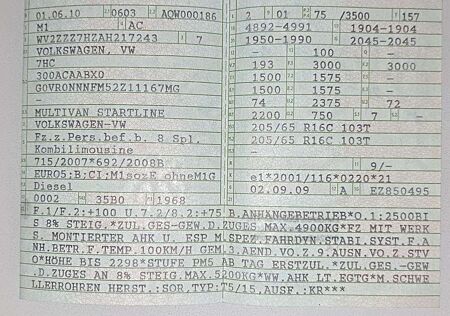 01.06.10 0603 AQW000186
M1 AC
WV2ZZZ7HZAH217243 7
VOLKSWAGEN, VW
7HC
300ACAABX0
G0VR0NNNFM52Z11167MG
–
MULTIVAN STARTLINE
VOLKSWAGEN-VW
Fz.z.Pers.bef.b. 8 Spl.
Kombilimousine
715/2007*692/2008B
EURO5;B;CI;M1sozE ohneM1G
Diesel
0002 35B0 1968
2 01 75 /3500 157
4892-4991 1904-1904
1950-1990 2045-2045
– 100 –
193 3000 3000
1500 1575 –
1500 1575 –
74 2375 72
2200 750 7 –
205/65 R16C 103T
205/65 R16C 103T
–
9/–
e1*2001/116*0220*21
02.09.09 A EZ850495
F.1/F.2:+100 U.7.2/8.2:+75 B.ANHÄNGEBETRIEB*O.1:2500BI
S 8% STEIG.*ZUL.GES-GEW.D.ZUGES MAX.4900KG*FZ MIT WERK
S. MONTIERTER AHK U. ESP M.SPEZ.FAHRDYN.STABI.SYST.F.A
NH.BETR.F.TEMP.100KM/H GEM.3.AEND.VO.Z.9.AUSN.VO.Z.STV
O*HÖHE BIS 2298*STUFE PM5 AB TAG ERSTZUL.*ZUL.GES.-GEW
.D.ZUGES AN 8% STEIG.MAX.5200KG*WW.AHK LT.EGTG*M.SCHWE
LLERROHREN HERST.:SOR,TYP:T5/15.AUSF.:KR***